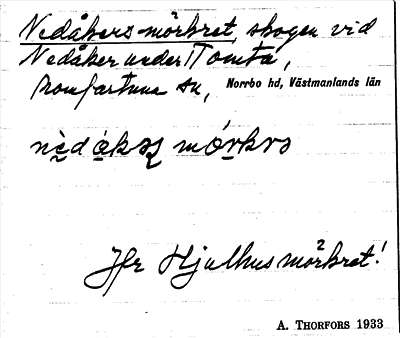 Nedåkers-mörkret, skogen vid
Nedåker under Tomta,
Romfartuna sn, Norrbo hd, Västmanlands län
Jfr Hjulhusmörkret!
A. THORFORS 1933